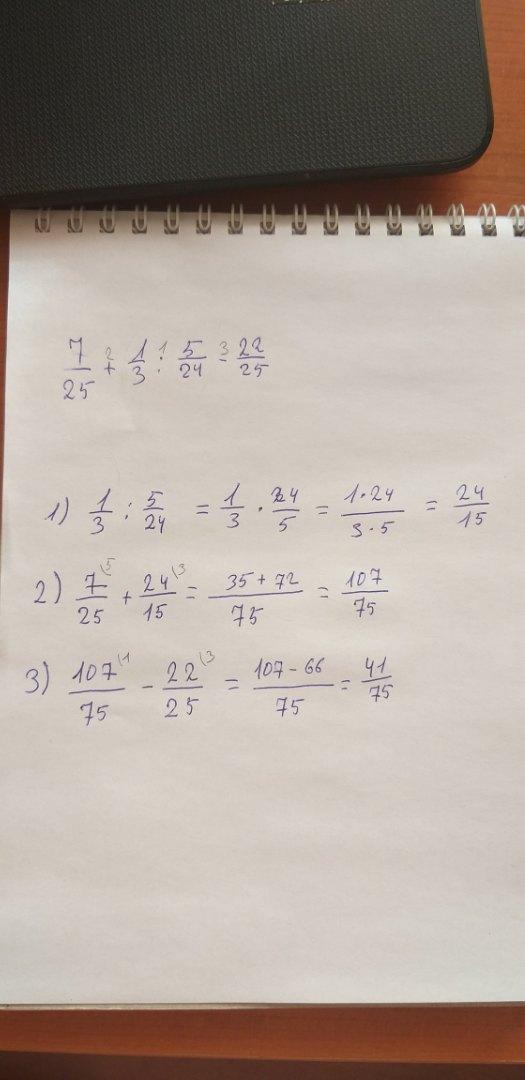 7/25 +² 1/3 :¹ 5/24 -³ 22/25
1) 1/3 : 5/24 = 1/3 · 24/5 = 1·24/3·5 = 24/15
2) 7\5/25 + 24\3/15 = 35+72/75 = 107/75
3) 107\1/75 - 22\3/25 = 107-66/75 = 41/75